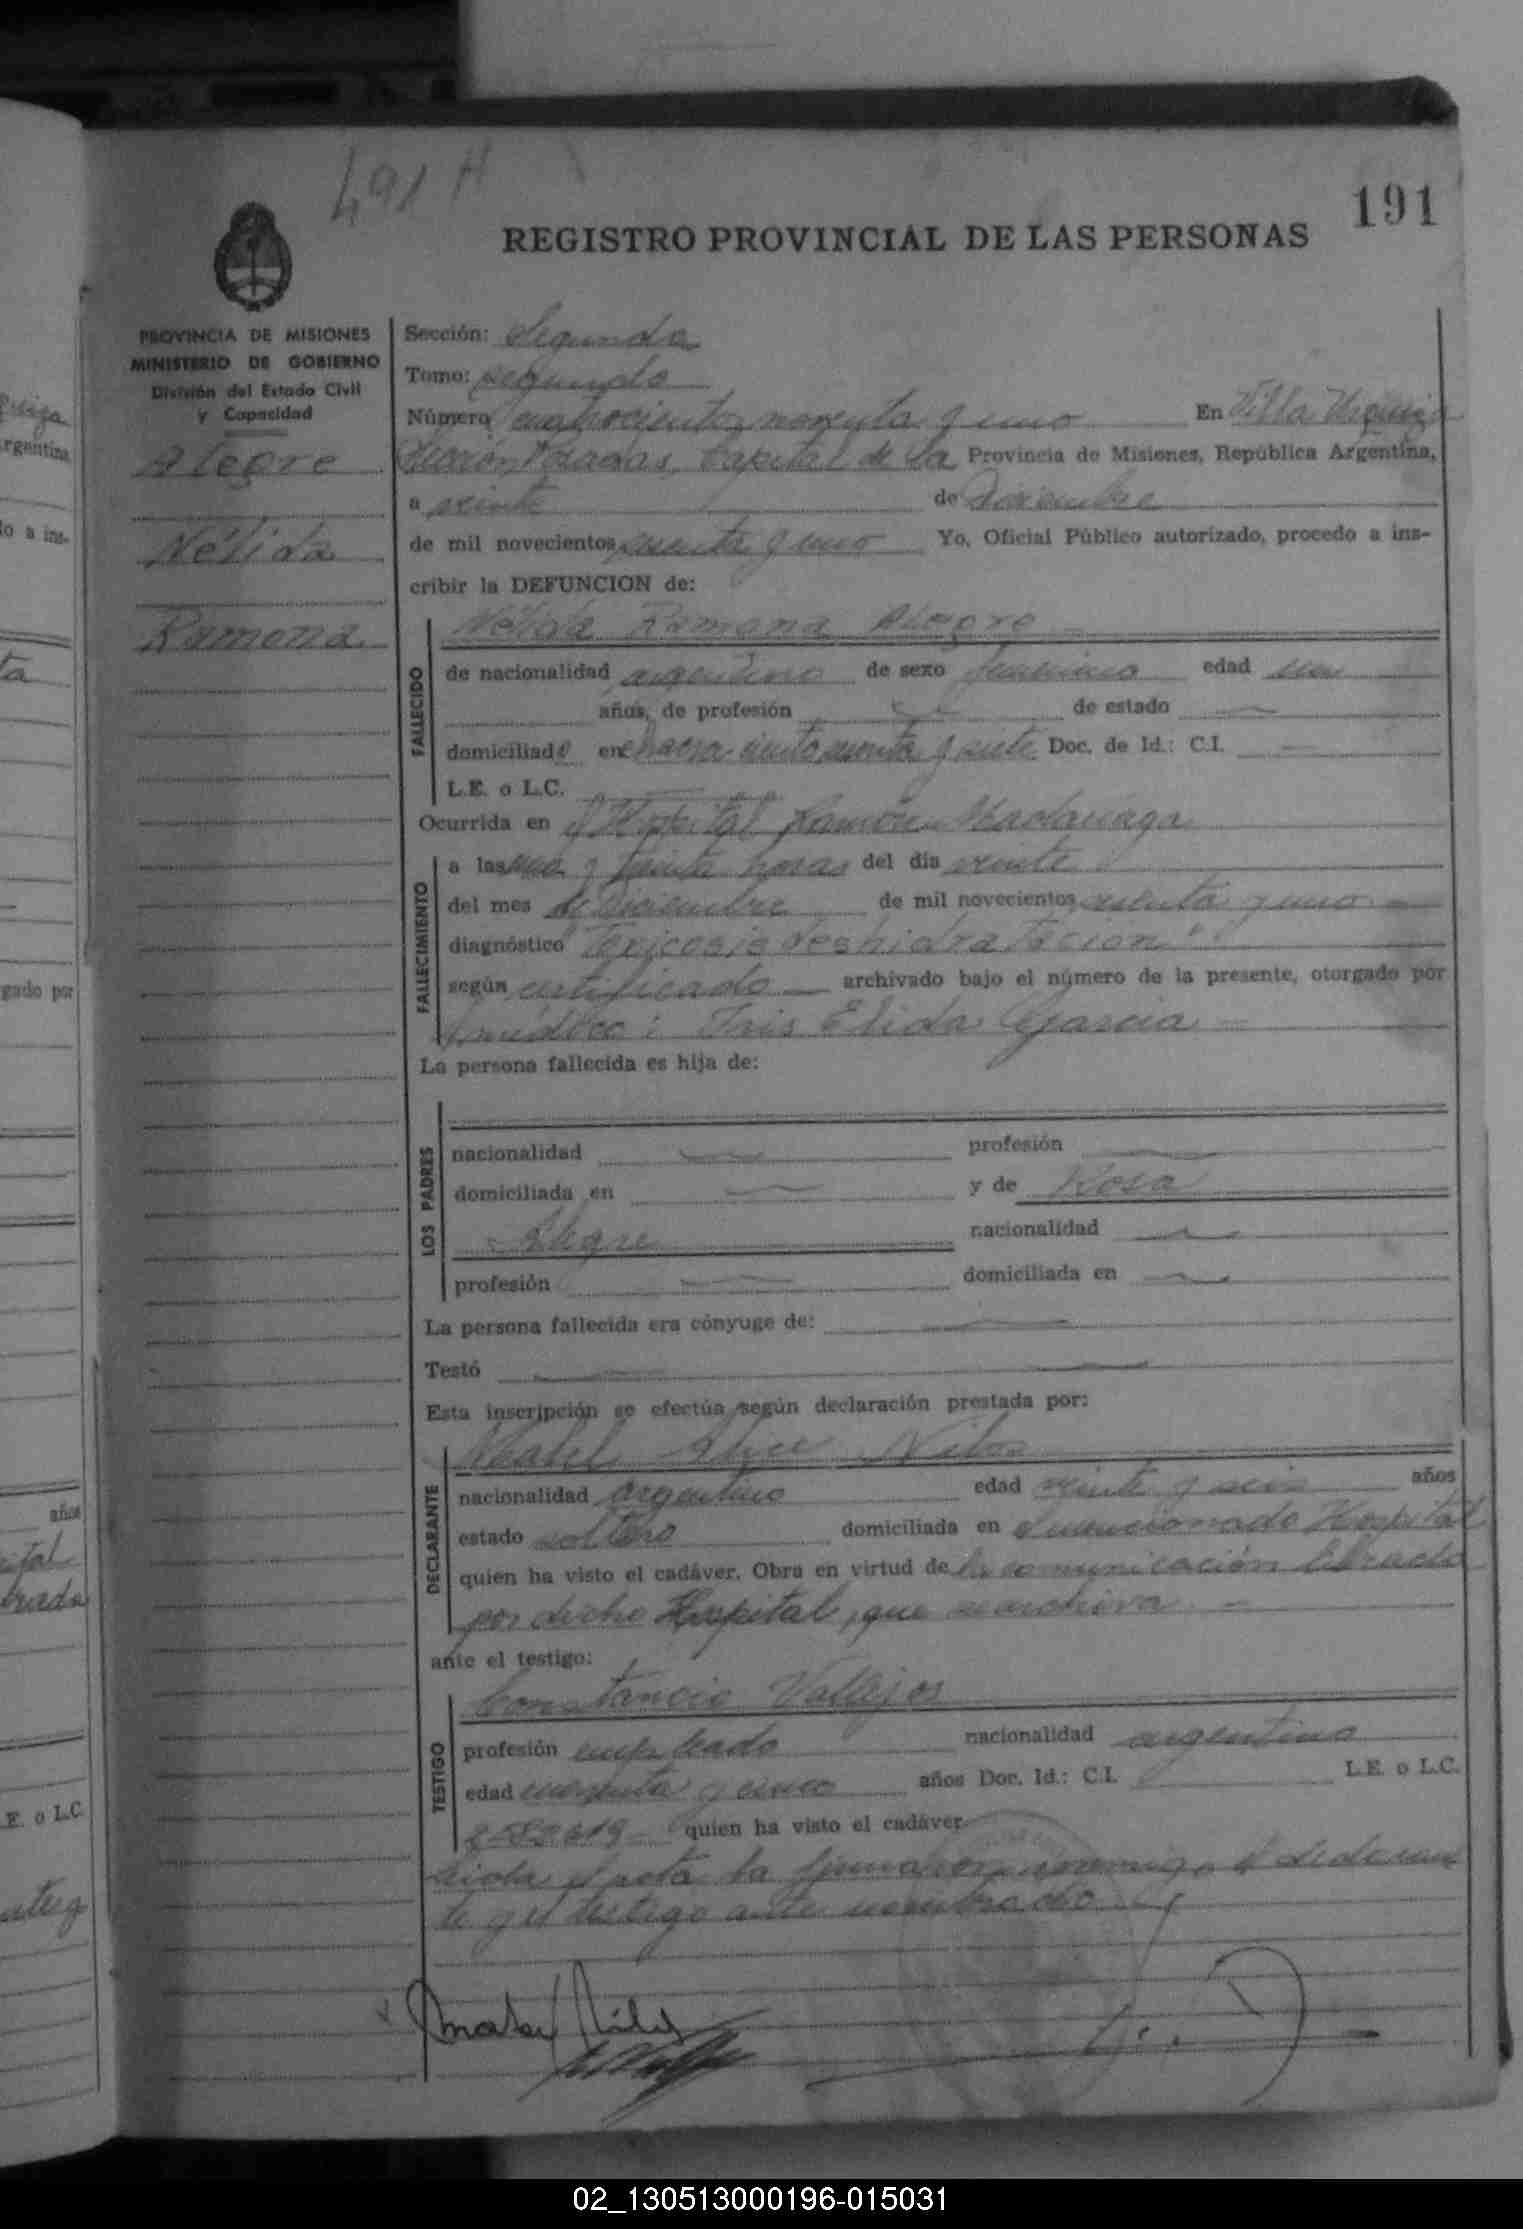 491 H
191
REGISTRO PROVINCIAL DE LAS PERSONAS
PROVINCIA DE MISIONES
MINISTERIO DE GOBIERNO
División del Estado Civil
y Capacidad
Alegre
Nélida
Ramona
Sección: Segunda
Tomo: segundo
Número cuatrocientos noventa y uno En Villa Urquiza
Posadas, Capital de la Provincia de Misiones, República Argentina,
a veinte de Diciembre
de mil novecientos sesenta y uno Yo, Oficial Público autorizado, procedo a ins-
cribir la DEFUNCION de:
FALLECIDO
Nélida Ramona Alegre
de nacionalidad argentina de sexo femenino edad un
años, de profesión de estado
domiciliado en chacra ciento sesenta y siete Doc. de Id.: C.I.
L.E. o L.C.
Ocurrida en el Hospital Ramón Madariaga
FALLECIMIENTO
a las una y treinta horas del día veinte
del mes de Diciembre de mil novecientos sesenta y uno
diagnóstico "Toxicosis deshidratación"
según certificado archivado bajo el número de la presente, otorgado por
médico: Elida Garcia
La persona fallecida es hija de:
LOS PADRES
nacionalidad profesión
domiciliada en y de Rosa
Alegre nacionalidad
profesión domiciliada en
La persona fallecida era cónyuge de:
Testó
Esta inscripción se efectúa según declaración prestada por:
DECLARANTE
nacionalidad argentino edad veinte y seis años
estado soltero domiciliada en el mencionado Hospital
quien ha visto el cadáver. Obra en virtud de la comunicación
por dicho Hospital, que se archiva
ante el testigo:
TESTIGO
Constancio Vallejos
profesión empleado nacionalidad argentino
edad cuarenta y cinco años Doc. Id.: C.I. L.E. o L.C.
quien ha visto el cadáver
Leida el acta la firmaron conmigo el declaran
te y el testigo ante nombrado
02_130513000196-015031